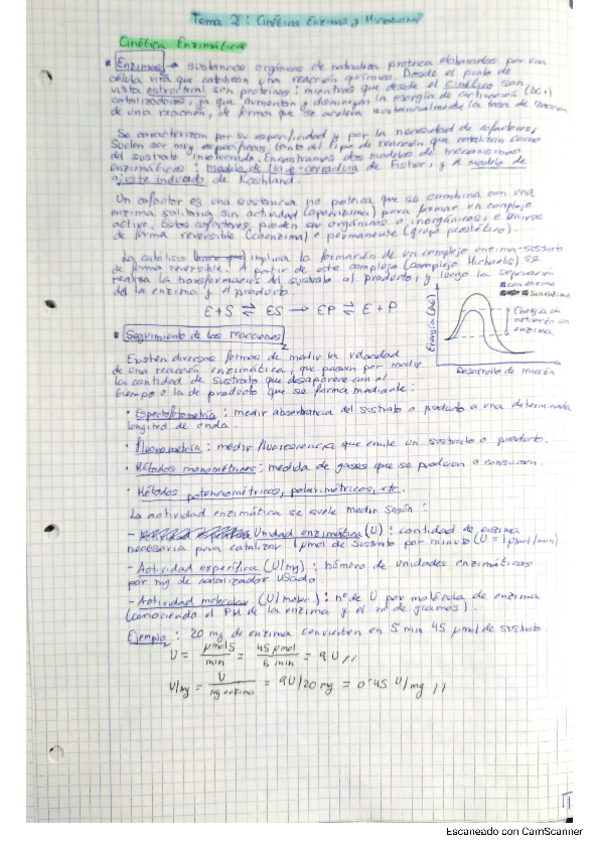 Tema 2: Cinética Enzimas y Microbiana
Cinética Enzimática
Enzimas → sustancias orgánicas de naturaleza proteica elaboradas por una
célula viva que catalizan una reacción química. Desde el punto de
vista estructural son proteínas; mientras que desde el cinético son
catalizadores, ya que aumentan y disminuyen la energía de activación
de una reacción, de forma que se acelera sustancialmente la tasa de reacción
Se caracterizan por su especificidad y por la necesidad de cofactores;
suelen ser muy específicas tanto del tipo de reacción que catalizan como
del sustrato involucrado. Encontramos dos modelos de mecanismos
enzimáticos: modelo de llave-cerradura de Fisher, y el modelo de
ajuste inducido de Koshland.
Un cofactor es una sustancia no proteica que se combina con una
enzima solitaria sin actividad (apoenzima) para formar un complejo
activo. Estos cofactores pueden ser orgánicos o inorgánicos, e unirse
de forma reversible (coenzima) o permanente (grupo prostético).
La catálisis implica la formación de un complejo enzima-sustrato
de forma reversible. A partir de este complejo (complejo Michaelis) se
realiza la transformación del sustrato al producto, y luego la separación
de la enzima y el producto.
E+S ⇌ ES → EP ⇌ E + P
con enzima
sin enzima
Energía de
activación con
enzima
Energía (ΔG)
Desarrollo de reacción
Seguimiento de las reacciones
Existen diversas formas de medir la velocidad
de una reacción enzimática, que pasan por medir
la cantidad de sustrato que desaparece con el
tiempo o la de producto que se forma mediante:
• Espectofotometría: medir absorbancia del sustrato o producto a una determinada
longitud de onda.
• fluorometría: medir fluorescencia que emite un sustrato o producto.
• Métodos manométricos: medida de gases que se producen o consumen.
• Métodos potenciométricos, polarimétricos, etc.
La actividad enzimática se suele medir según:
- Unidad enzimática (U): cantidad de enzima
necesaria para catalizar 1 μmol de sustrato por minuto (U = 1 μmol/min).
- Actividad específica (U/mg): número de unidades enzimáticas
por mg de catalizador usado
- Actividad molecular (U/molec.): nº de U por molécula de enzima
(conociendo el PM de la enzima y el nº de gramos).
Ejemplo: 20 mg de enzima convierten en 5 min 45 μmol de sustrato.
U = μmol S / min = 45 μmol / 5 min = 9 U //
U/mg = U / mg enzima = 9U/20 mg = 0'45 U/mg //
Escaneado con CamScanner